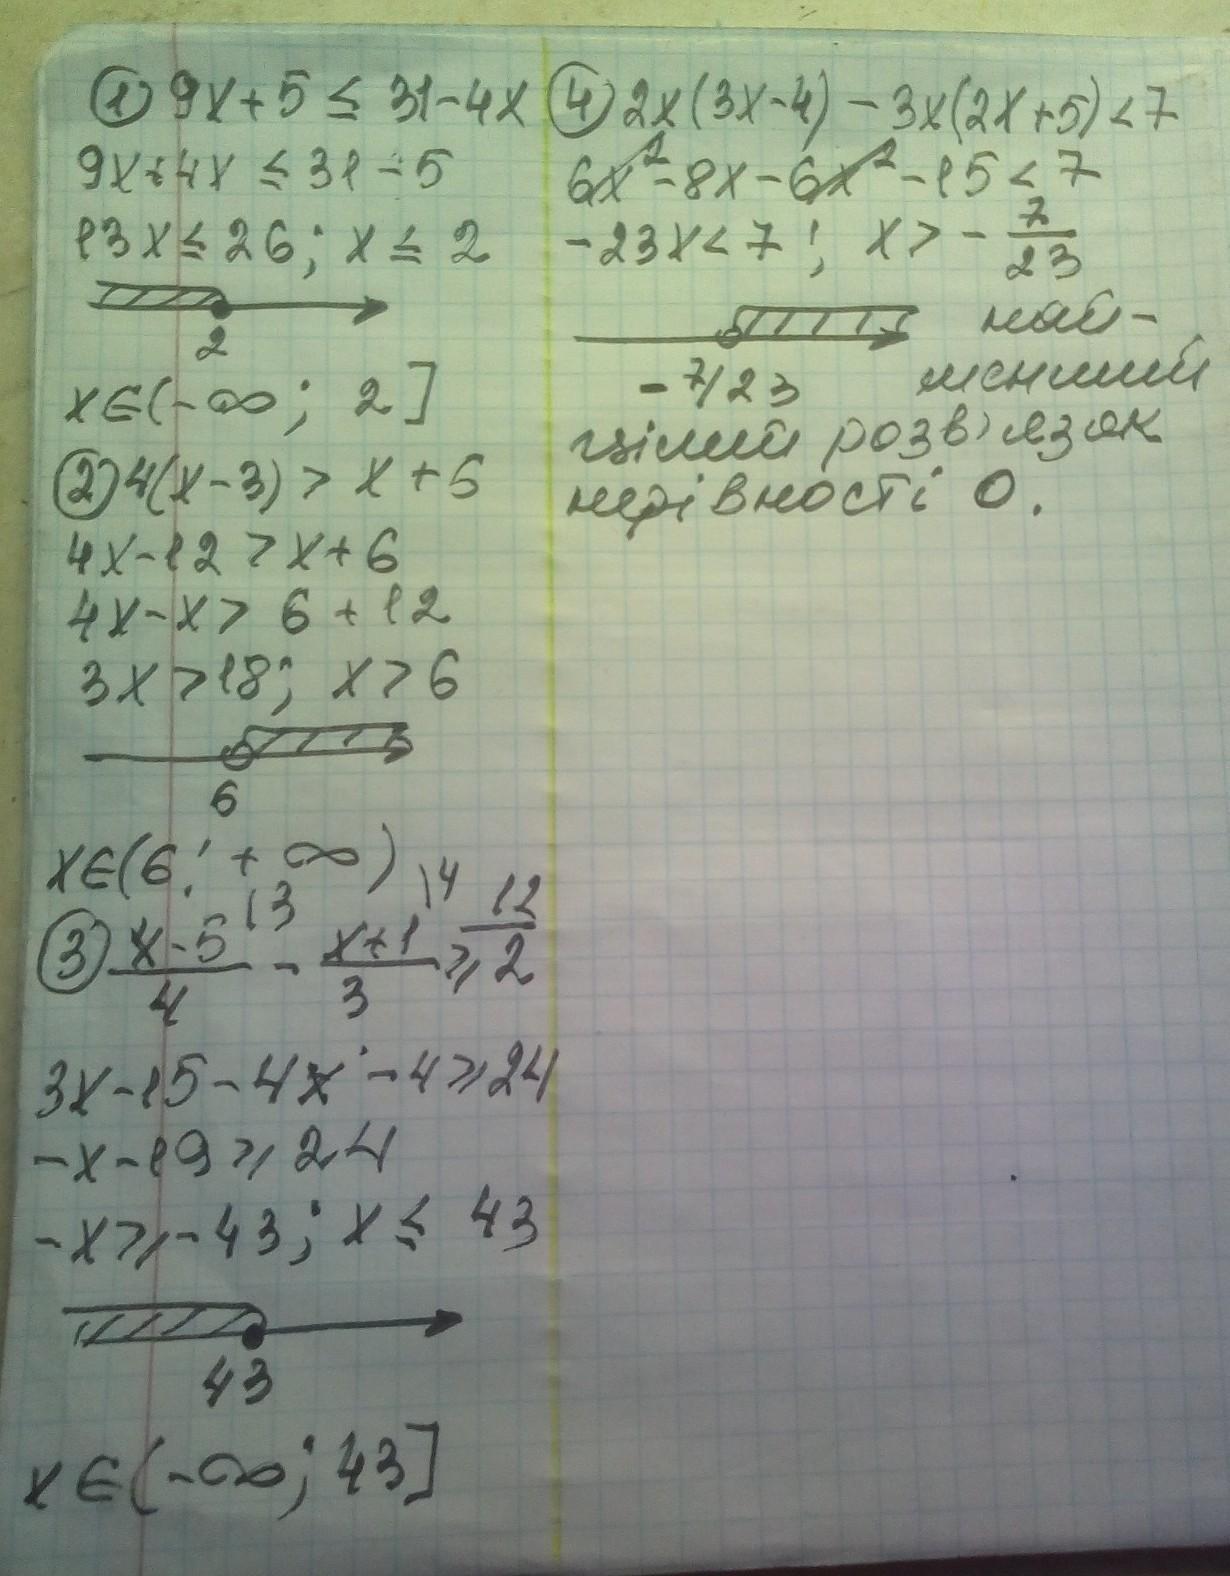 ① 9x+5 ≤ 31-4x
9x+4x ≤ 31-5
13x ≤ 26; x ≤ 2
2
x∈(-∞; 2]
② 4(x-3) > x+6
4x-12 > x+6
4x-x > 6+12
3x > 18; x > 6
6
x∈(6; +∞)
③ x-5/4 \3 - x+1/3 \4 ≥ 2 \12
3x-15-4x-4 ≥ 24
-x-19 ≥ 24
-x ≥ -43; x ≤ 43
43
x∈(-∞; 43]
④ 2x(3x-4) - 3x(2x+5) < 7
6x²-8x-6x²-15 < 7
-23x < 7; x > -7/23
-7/23
най-
менший
цілий розв'язок
нерівності 0.